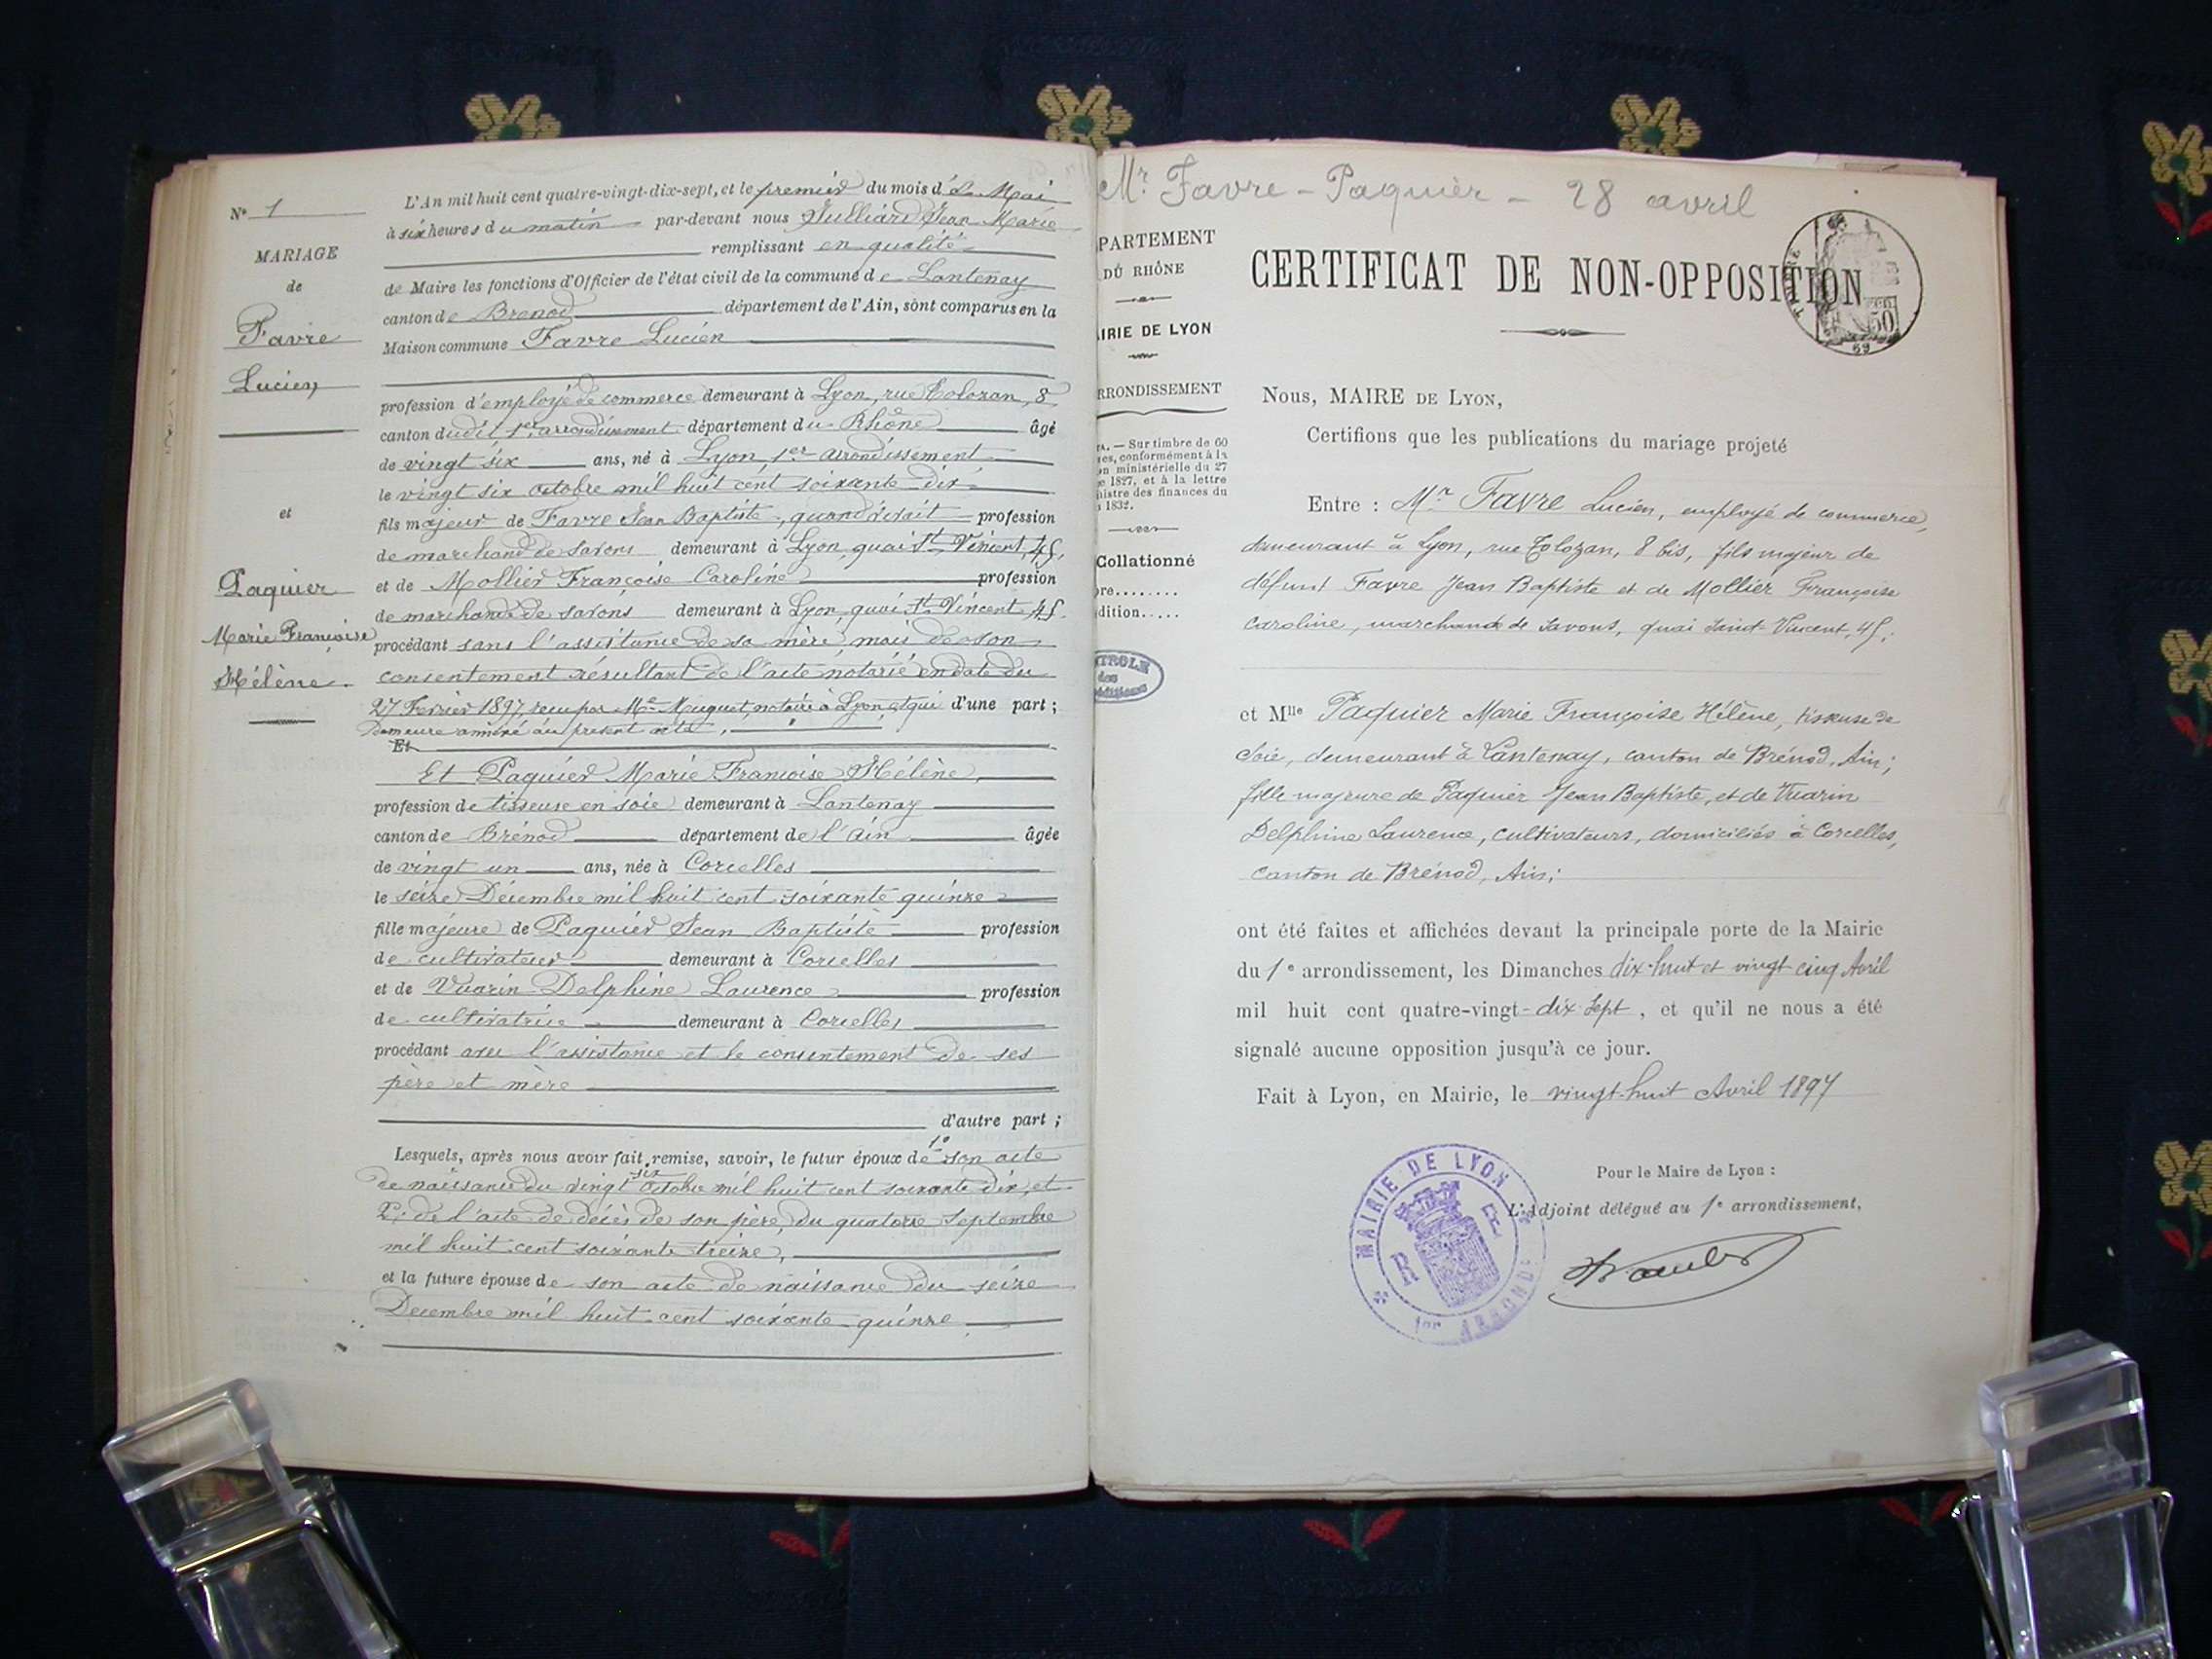 N° 1
MARIAGE
de
Favre
Lucien
et
Paquier
Marie Françoise
Hélène.
L'An mil huit cent quatre-vingt-dix-sept, et le premier du mois de Mai
à six heures du matin par-devant nous Julliard Jean Marie
remplissant en qualité
de Maire les fonctions d'Officier de l'état civil de la commune de Lantenay
canton de Brenod département de l'Ain, sont comparus en la
Maison commune Favre Lucien
profession d'employé de commerce demeurant à Lyon, rue Tolozan, 8
canton dudit 1er arrondissement département du Rhône âgé
de vingt six ans, né à Lyon, 1er arrondissement
le vingt six octobre mil huit cent soixante dix
fils majeur de Favre Jean Baptiste, quand vivait profession
de marchand de savons demeurant à Lyon, quai St Vincent, 45,
et de Mollier Françoise Caroline profession
de marchande de savons demeurant à Lyon, quai St Vincent, 45.
procédant sans l'assistance de sa mère, mais de son
consentement résultant de l'acte notarié en date du
27 Fevrier 1897, recu par Me Muguet, notaire à Lyon, et qui d'une part ;
Demeure annexé au present acte,
Et
Et Paquier Marie Françoise Hélène,
profession de tisseuse en soie demeurant à Lantenay
canton de Brénod département de l'Ain âgée
de vingt un ans, née à Corcelles
le seize Décembre mil huit cent soixante quinze
fille majeure de Paquier Jean Baptiste profession
de cultivateur demeurant à Corcelles
et de Vuarin Delphine Laurence profession
de cultivatrice demeurant à Corcelles
procédant avec l'assistance et le consentement de ses
père et mère
d'autre part ;
Lesquels, après nous avoir fait remise, savoir, le futur époux de 1° son acte
de naissance du vingt six octobre mil huit cent soixante dix, et
2° de l'acte de décès de son père, du quatorze Septembre
mil huit cent soixante treize,
et la future épouse de son acte de naissance du seize
Decembre mil huit cent soixante quinze
Mr Favre - Paquier - 28 avril
PARTEMENT
DU RHÔNE
IRIE DE LYON
RRONDISSEMENT
TA. — Sur timbre de 60
es, conformément à la
on ministérielle du 27
e 1827, et à la lettre
nistre des finances du
1832.
Collationné
re........
dition.....
TROLE
des
ditions
CERTIFICAT DE NON-OPPOSITION
50
69
Nous, MAIRE DE LYON,
Certifions que les publications du mariage projeté
Entre : Mr Favre Lucien, employé de commerce,
demeurant à Lyon, rue Tolozan, 8 bis, fils majeur de
défunt Favre Jean Baptiste et de Mollier Françoise
Caroline, marchande de savons, quai Saint-Vincent, 45,
et Mlle Paquier Marie Françoise Hélène, tisseuse de
Soie, demeurant à Lantenay, canton de Brénod, Ain;
fille majeure de Paquier Jean Baptiste, et de Vuarin
Delphine Laurence, cultivateurs, domiciliés à Corcelles,
canton de Brénod, Ain;
ont été faites et affichées devant la principale porte de la Mairie
du 1e arrondissement, les Dimanches dix-huit et vingt cinq Avril
mil huit cent quatre-vingt-dix sept, et qu'il ne nous a été
signalé aucune opposition jusqu'à ce jour.
Fait à Lyon, en Mairie, le vingt-huit Avril 1897
Pour le Maire de Lyon :
L'Adjoint délégué au 1e arrondissement,
MAIRIE DE LYON
R F
1er ARRONDt